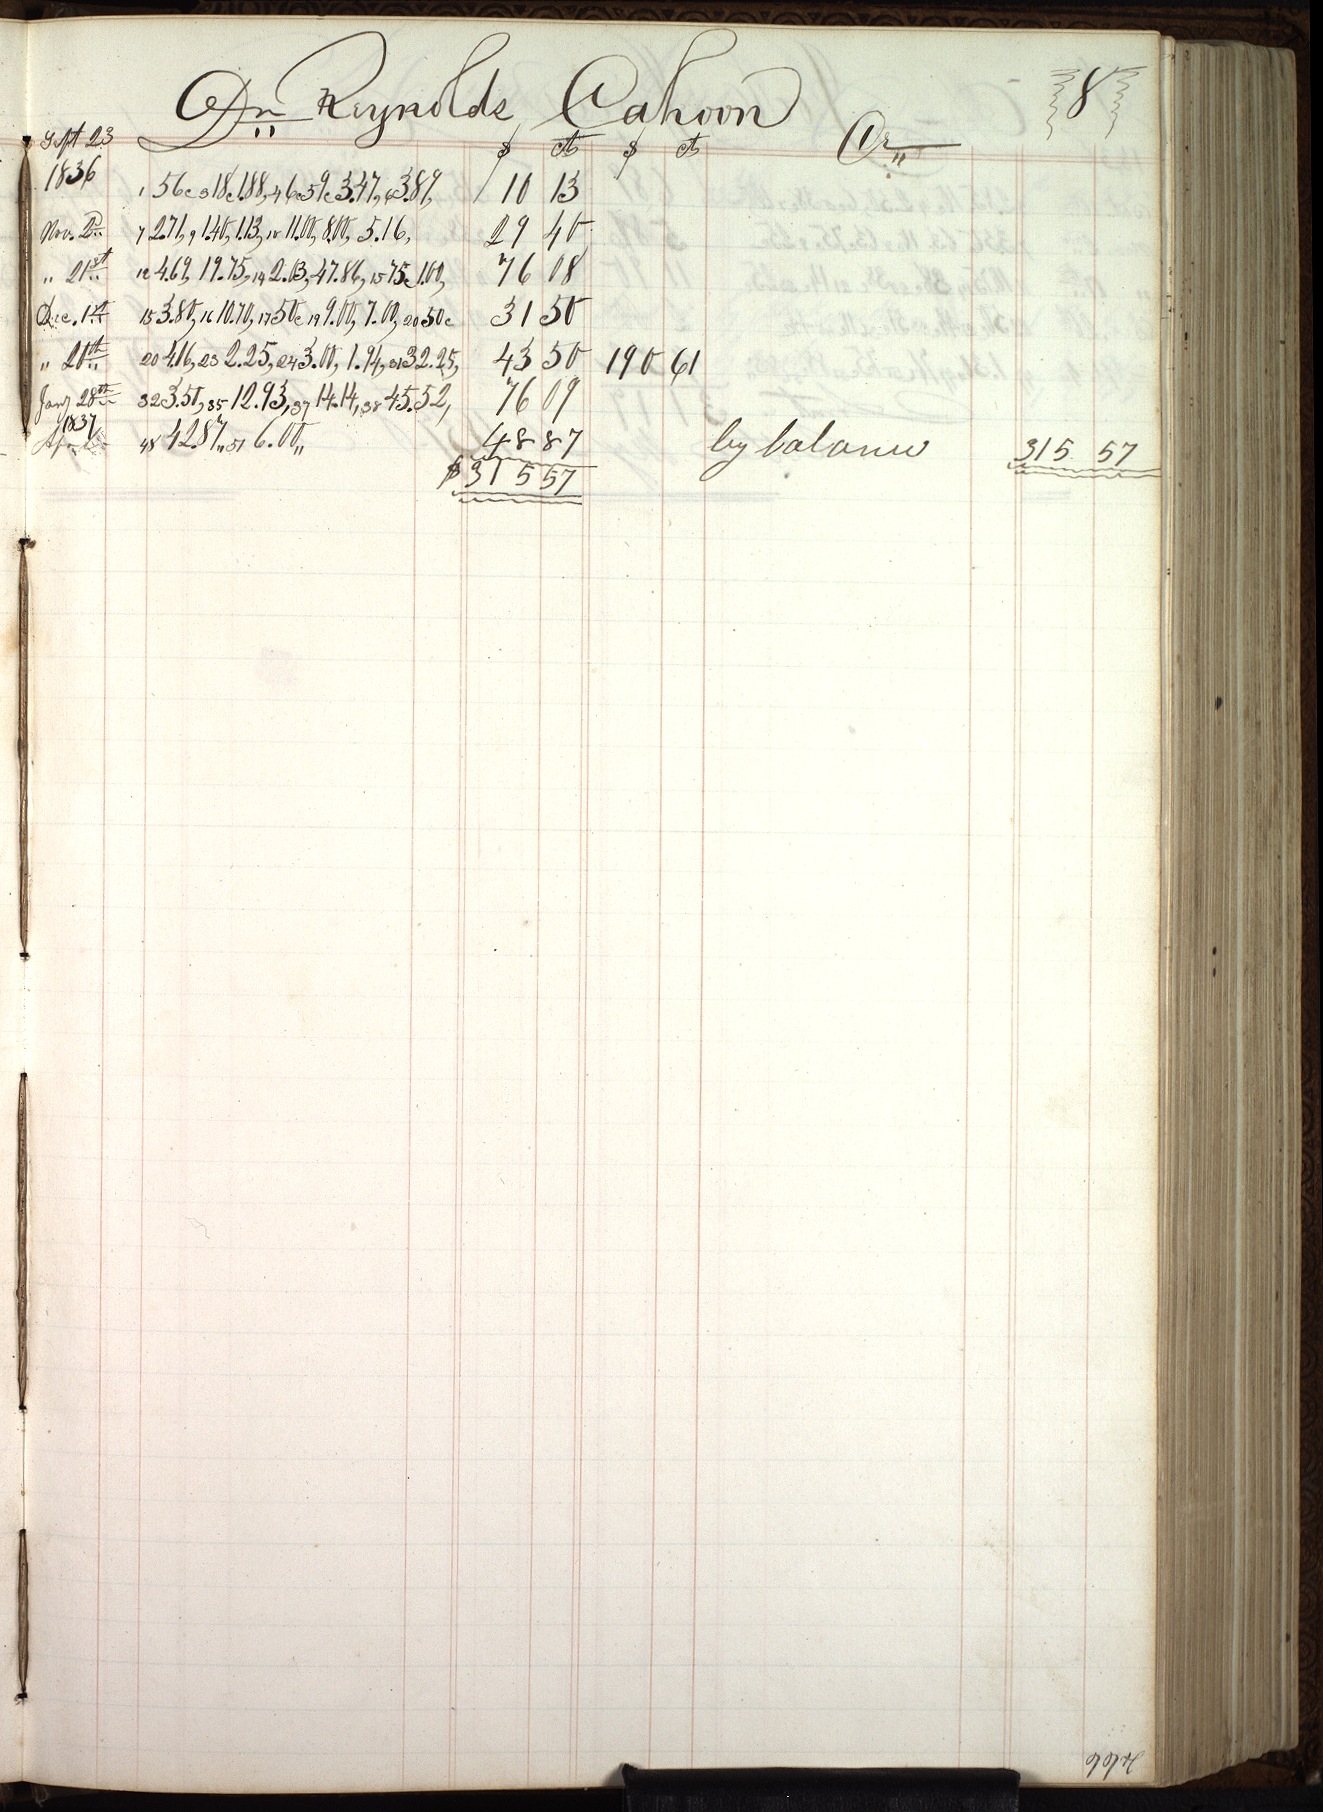 Dr Reynolds Cahoon 8
Sept 23 $ cts $ cts Cr
1836 1 56c 3 18c 1.88, 4 6c 5 9c 3.47, 6 3.89, 10 13
Nov. 2d 7 2.71, 9 1.40, 1.13, 10 11.00, 8.00, 5.16, 29 40
" 21st 12 4.69, 19.75, 14 2.03, 47.86, 15 75c 1.00, 76 08
Dec. 1st 15 3.80, 16 10.70, 17 50c 19 9.00, 7.00, 20 50c 31 50
" 20th 20 4.16, 23 2.25, 24 3.00, 1.94, 31 32.25, 43 50 190 61
Jany 28th 32 3.50, 35 12.93, 37 14.14, 38 45.52, 76 09
1837
Apr. 48 42.87, 51 6.00, 48 87 by balance 315 57
$315 57